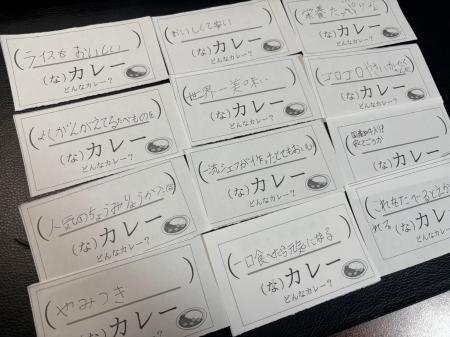 ライスも おいしい
(な)カレー
どんなカレー?
おいしくて安い
(な)カレー
どんなカレー?
栄養たっぷりな
(な)カレー
どんなカレー?
よくかんがえてるたべものを
(な)カレー
どんなカレー?
世界一美味い
(な)カレー
どんなカレー?
ゴロゴロやさいがたくさん
(な)カレー
どんなカレー?
人気のちょうみりょうがつまった
(な)カレー
どんなカレー?
一流シェフが作ったとてもおいしい
(な)カレー
どんなカレー?
国産
安くて
(な)カレー
どんなカレー?
やみつき
(な)カレー
どんなカレー?
一口食べたら元気になる
(な)カレー
どんなカレー?
(な)カレー
どんなカレー?